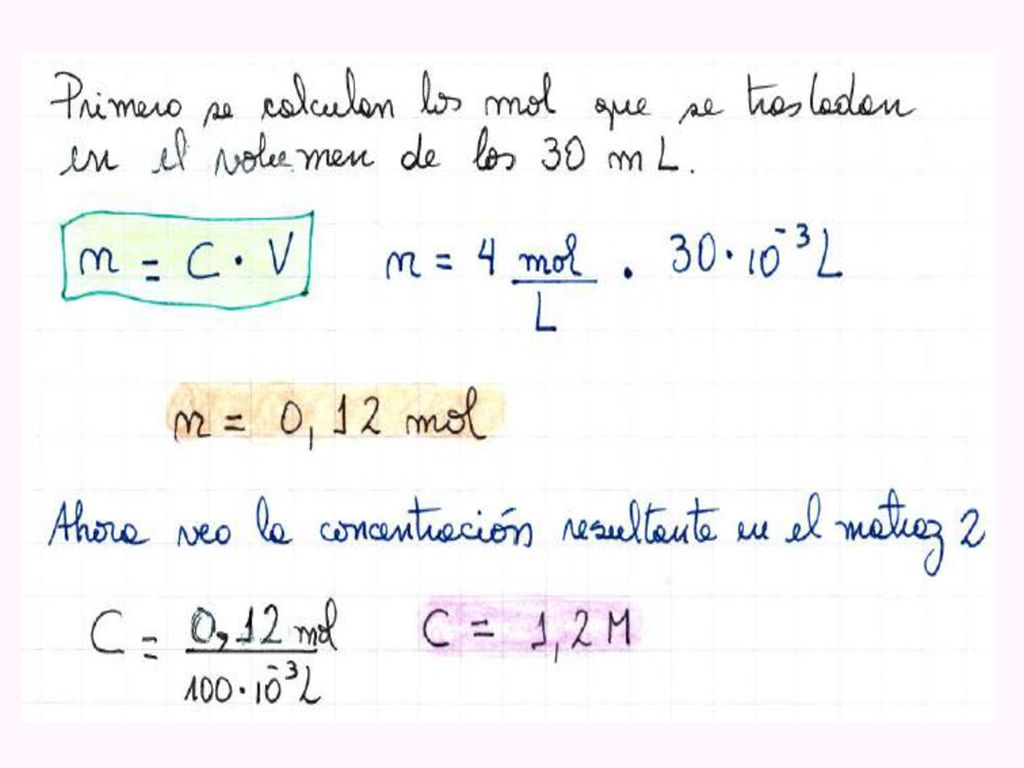 Primero se calculan los mol que se trasladan
en el volumen de los 30 mL.
n = C · V n = 4 mol/L · 30·10⁻³ L
n = 0,12 mol
Ahora veo la concentración resultante en el matraz 2
C = 0,12 mol / 100·10⁻³ L C = 1,2 M